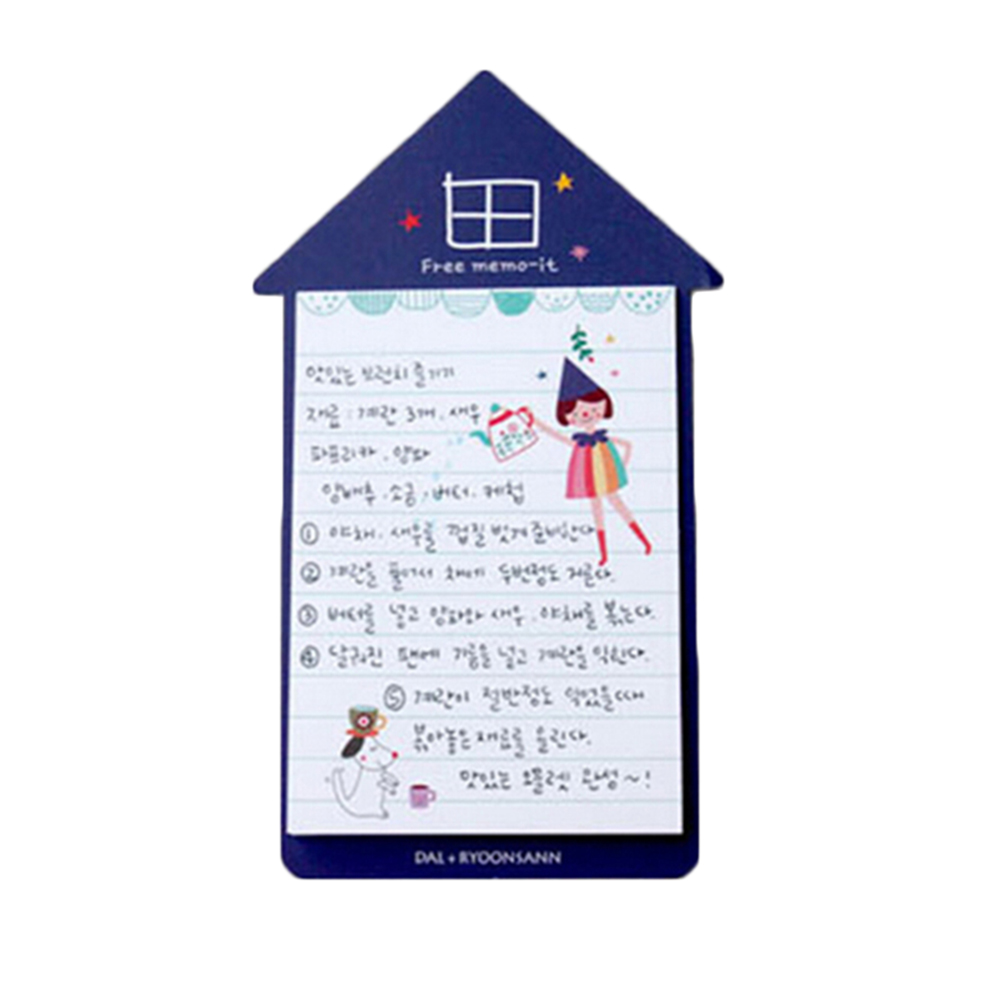 Free memo-it
맛있는 브런치 즐기기
재료 : 계란 3개. 새우
파프리카. 양파
양배추. 소금. 버터. 케첩
① 야채. 새우를 껍질 벗겨 준비한다.
② 계란을 풀어서 채에 두번정도 거른다.
③ 버터를 넣고 양파와 새우. 야채를 볶는다.
④ 달궈진 팬에 기름을 넣고 계란을 익힌다.
⑤ 계란이 절반정도 익었을때
볶아놓은 재료를 올린다.
맛있는 오믈렛 완성~!
DAL + RYOONSANN